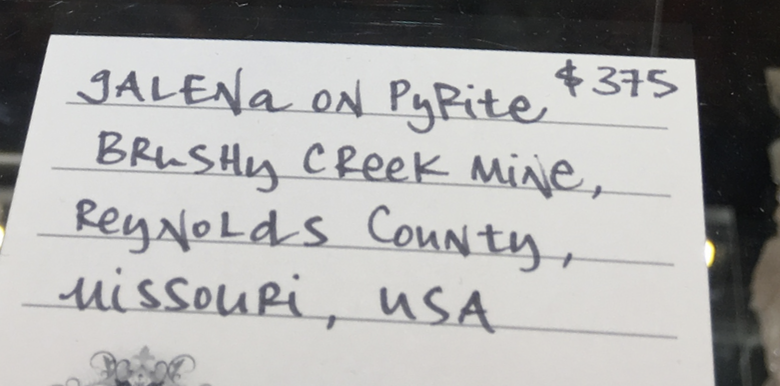 GALENa ON PyRite $375
BRuSHy CReeK MiNe,
ReyNoLdS CouNty,
MiSSouRi, USA